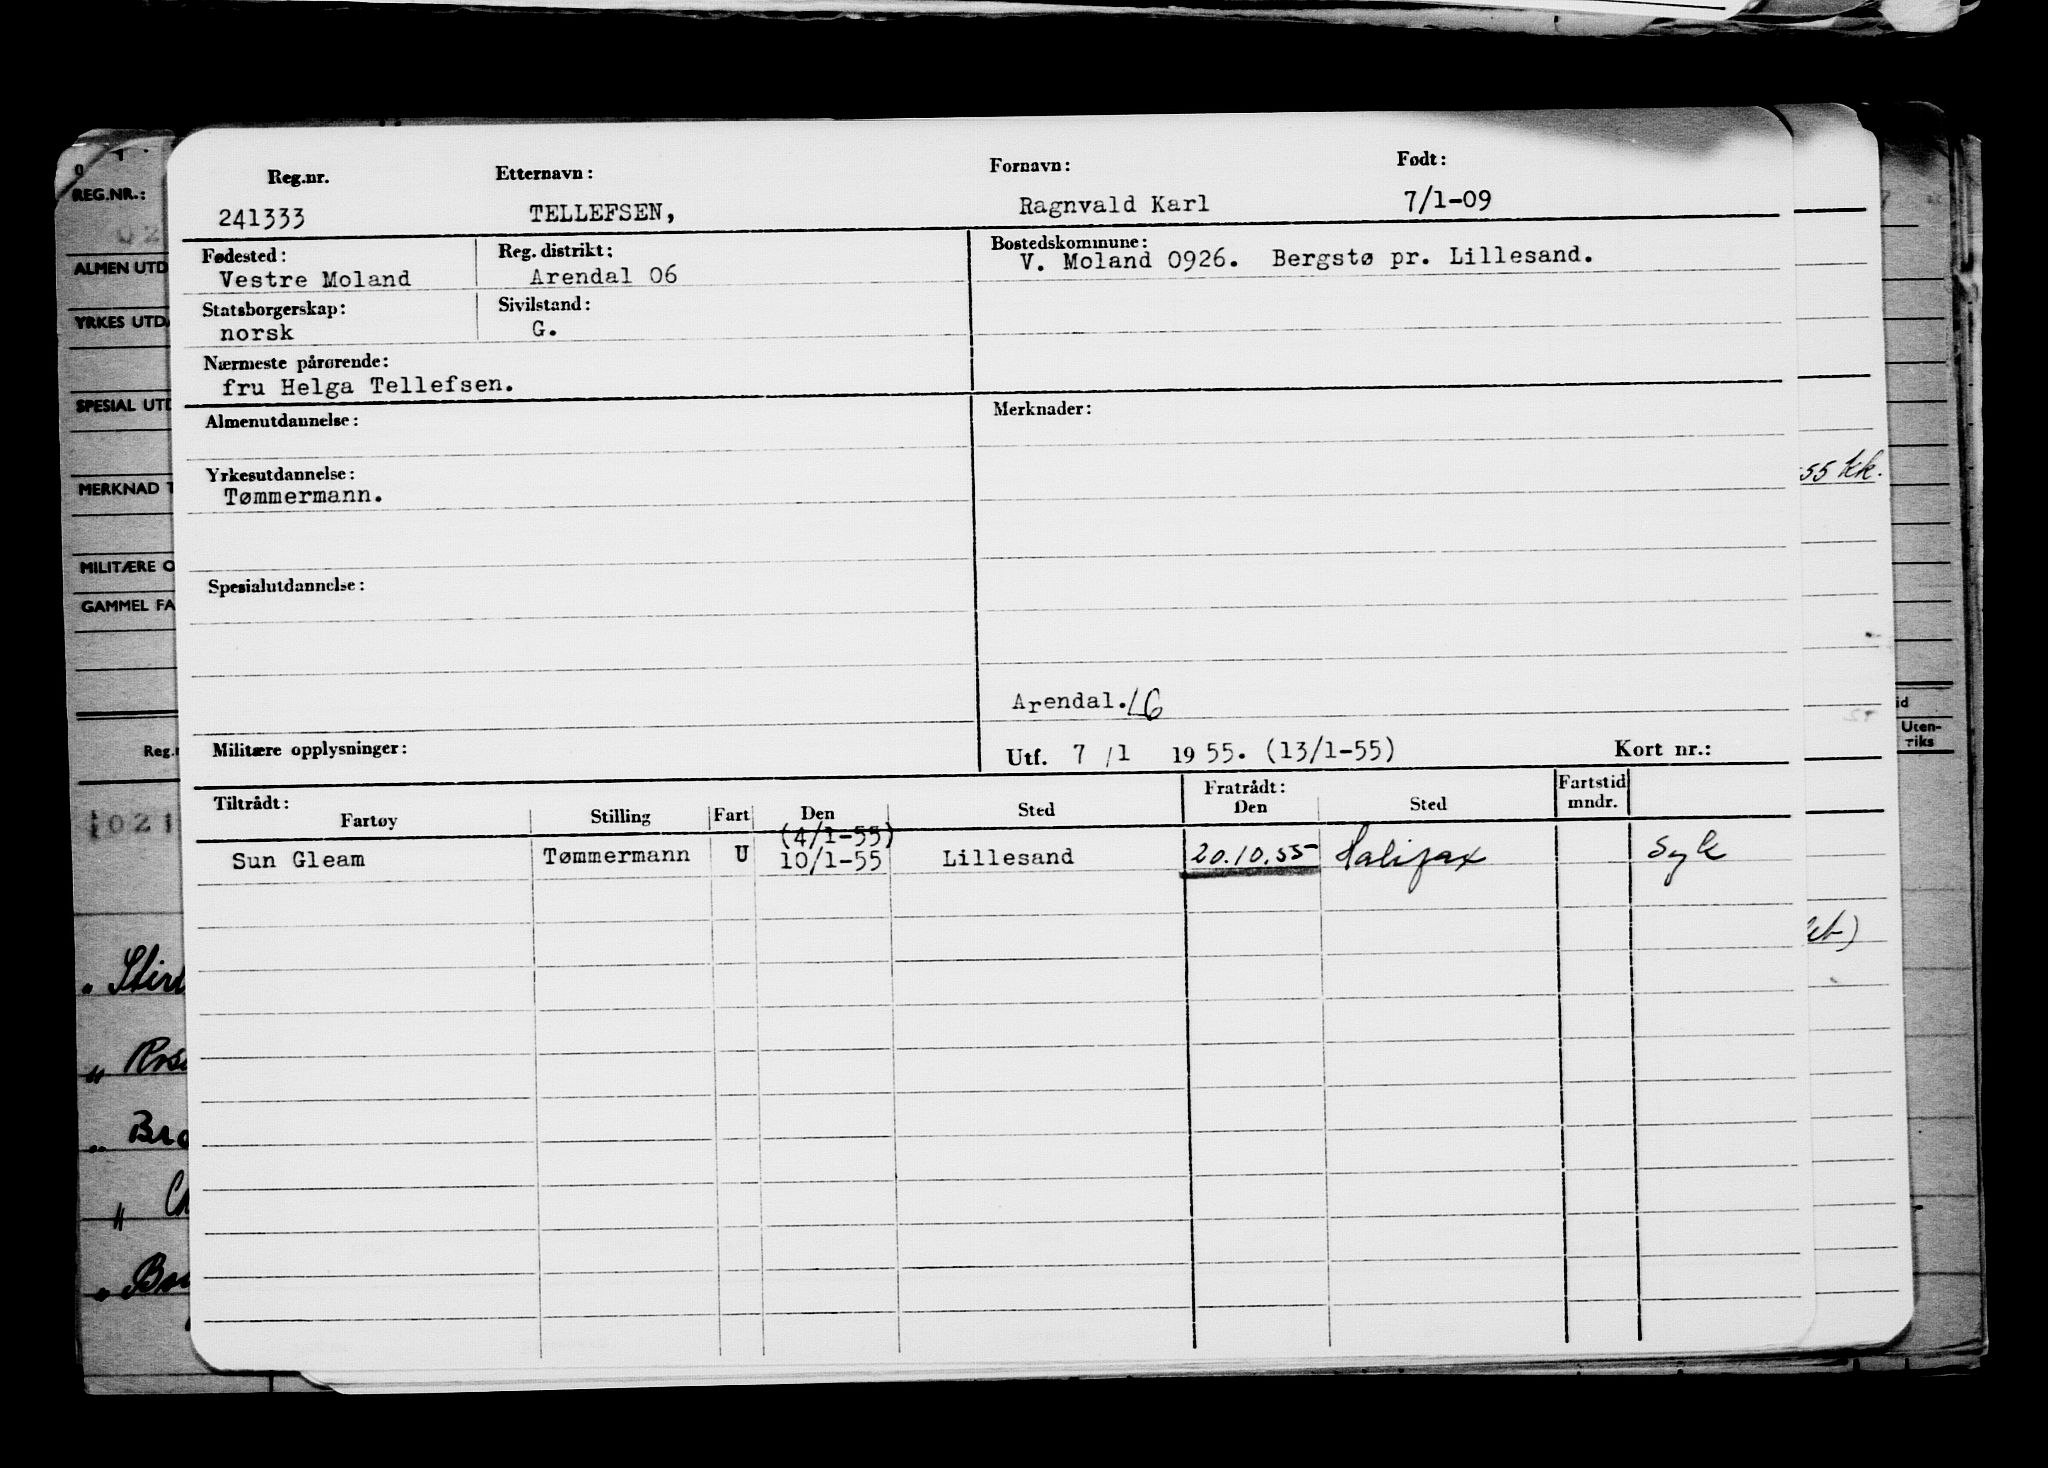 Reg.nr. Etternavn: Fornavn: Født:
241333 TELLEFSEN, Ragnvald Karl 7/1-09
Fødested: Reg. distrikt: Bostedskommune:
Vestre Moland Arendal 06 V. Moland 0926. Bergstø pr. Lillesand.
Statsborgerskap: Sivilstand:
norsk G.
Nærmeste pårørende:
fru Helga Tellefsen.
Almenutdannelse: Merknader:
Yrkesutdannelse:
Tømmermann.
Spesialutdannelse:
Arendal./6
Militære opplysninger: Utf. 7/1 1955. (13/1-55) Kort nr.:
Tiltrådt: Fratrådt: Fartstid
Fartøy Stilling Fart Den Sted Den Sted mndr.
(4/1-55)
Sun Gleam Tømmermann U 10/1-55 Lillesand 20.10.55 Halifax Syk
REG.NR.:
ALMEN UTD
YRKES UTD
SPESIAL UTD
MERKNAD T
MILITÆRE O
GAMMEL FA
Reg.n
021
" Stir
"
" Bro
"
"
55 kk.
id
Uten-
riks
et)